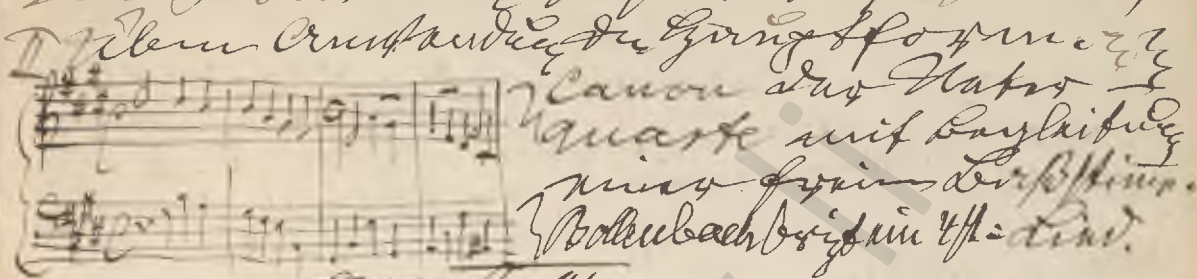 üben Anwendung der Hauptform.
Canon der Unter-
quarte mit Begleitung
einer freien Baßstimme.
Bollenbach bringt ein 4st: Lied.